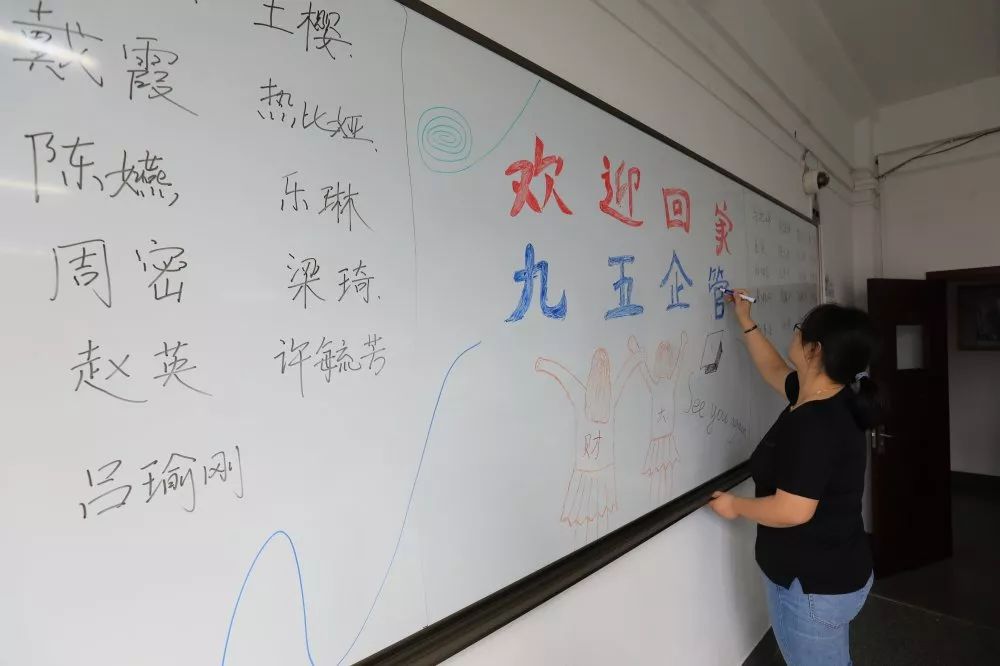 戴霞
王樱
陈嬿
热比娅
周密
乐琳
赵英
梁琦
吕瑜刚
许毓芳
欢迎回家
九五企管
财大
See you again